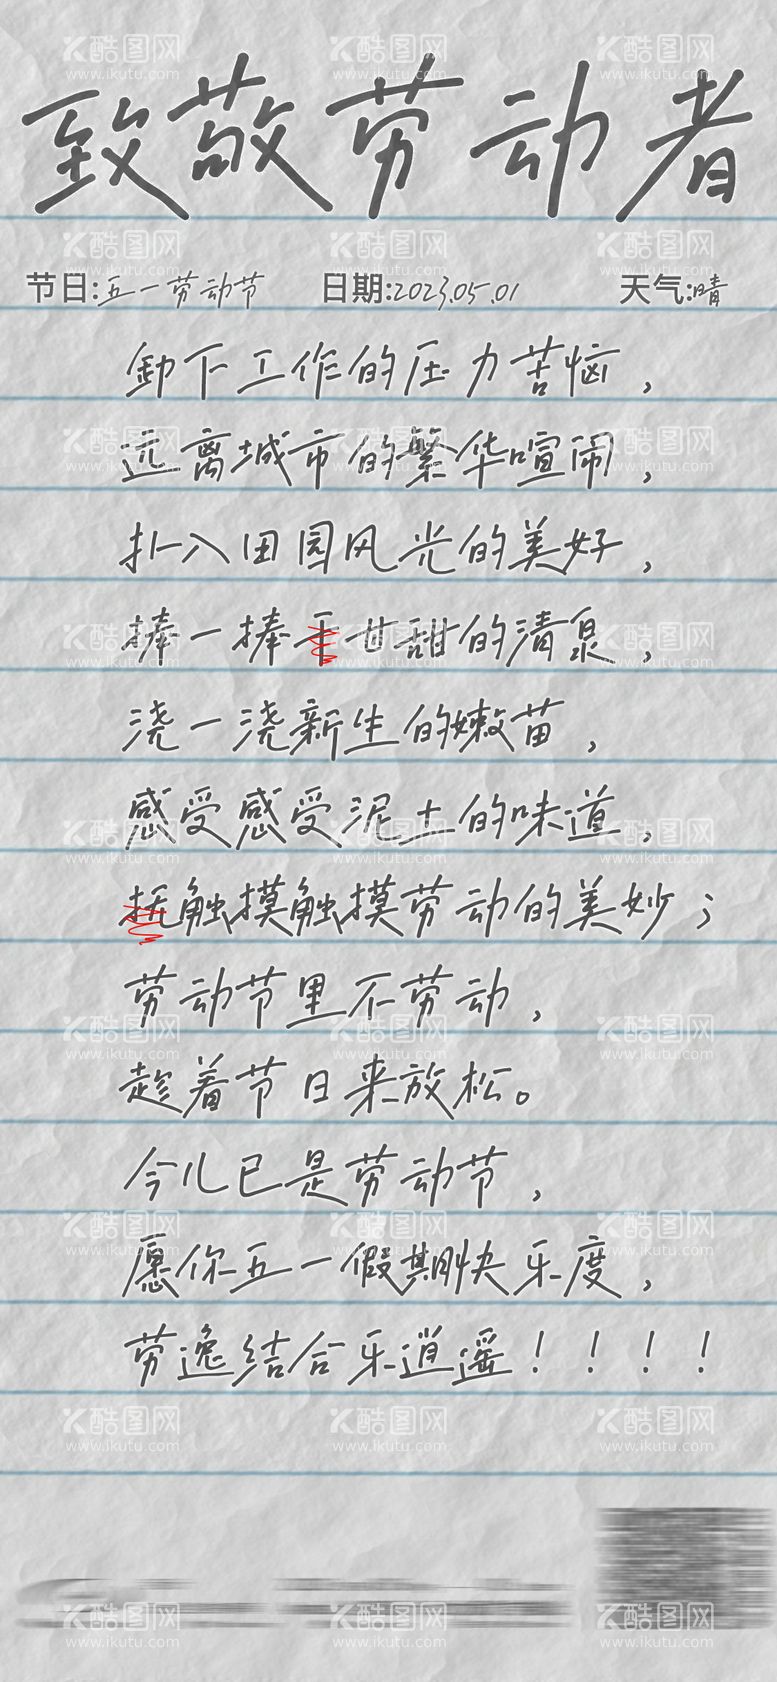 致敬劳动者
节日:五一劳动节 日期:2023.05.01 天气:晴
卸下工作的压力苦恼，
远离城市的繁华喧闹，
扑入田园风光的美好，
捧一捧干甘甜的清泉，
浇一浇新生的嫩苗，
感受感受泥土的味道，
抚触摸触摸劳动的美妙；
劳动节里不劳动，
趁着节日来放松。
今儿已是劳动节，
愿你五一假期快乐度，
劳逸结合乐逍遥！！！！
酷图网
www.ikutu.com